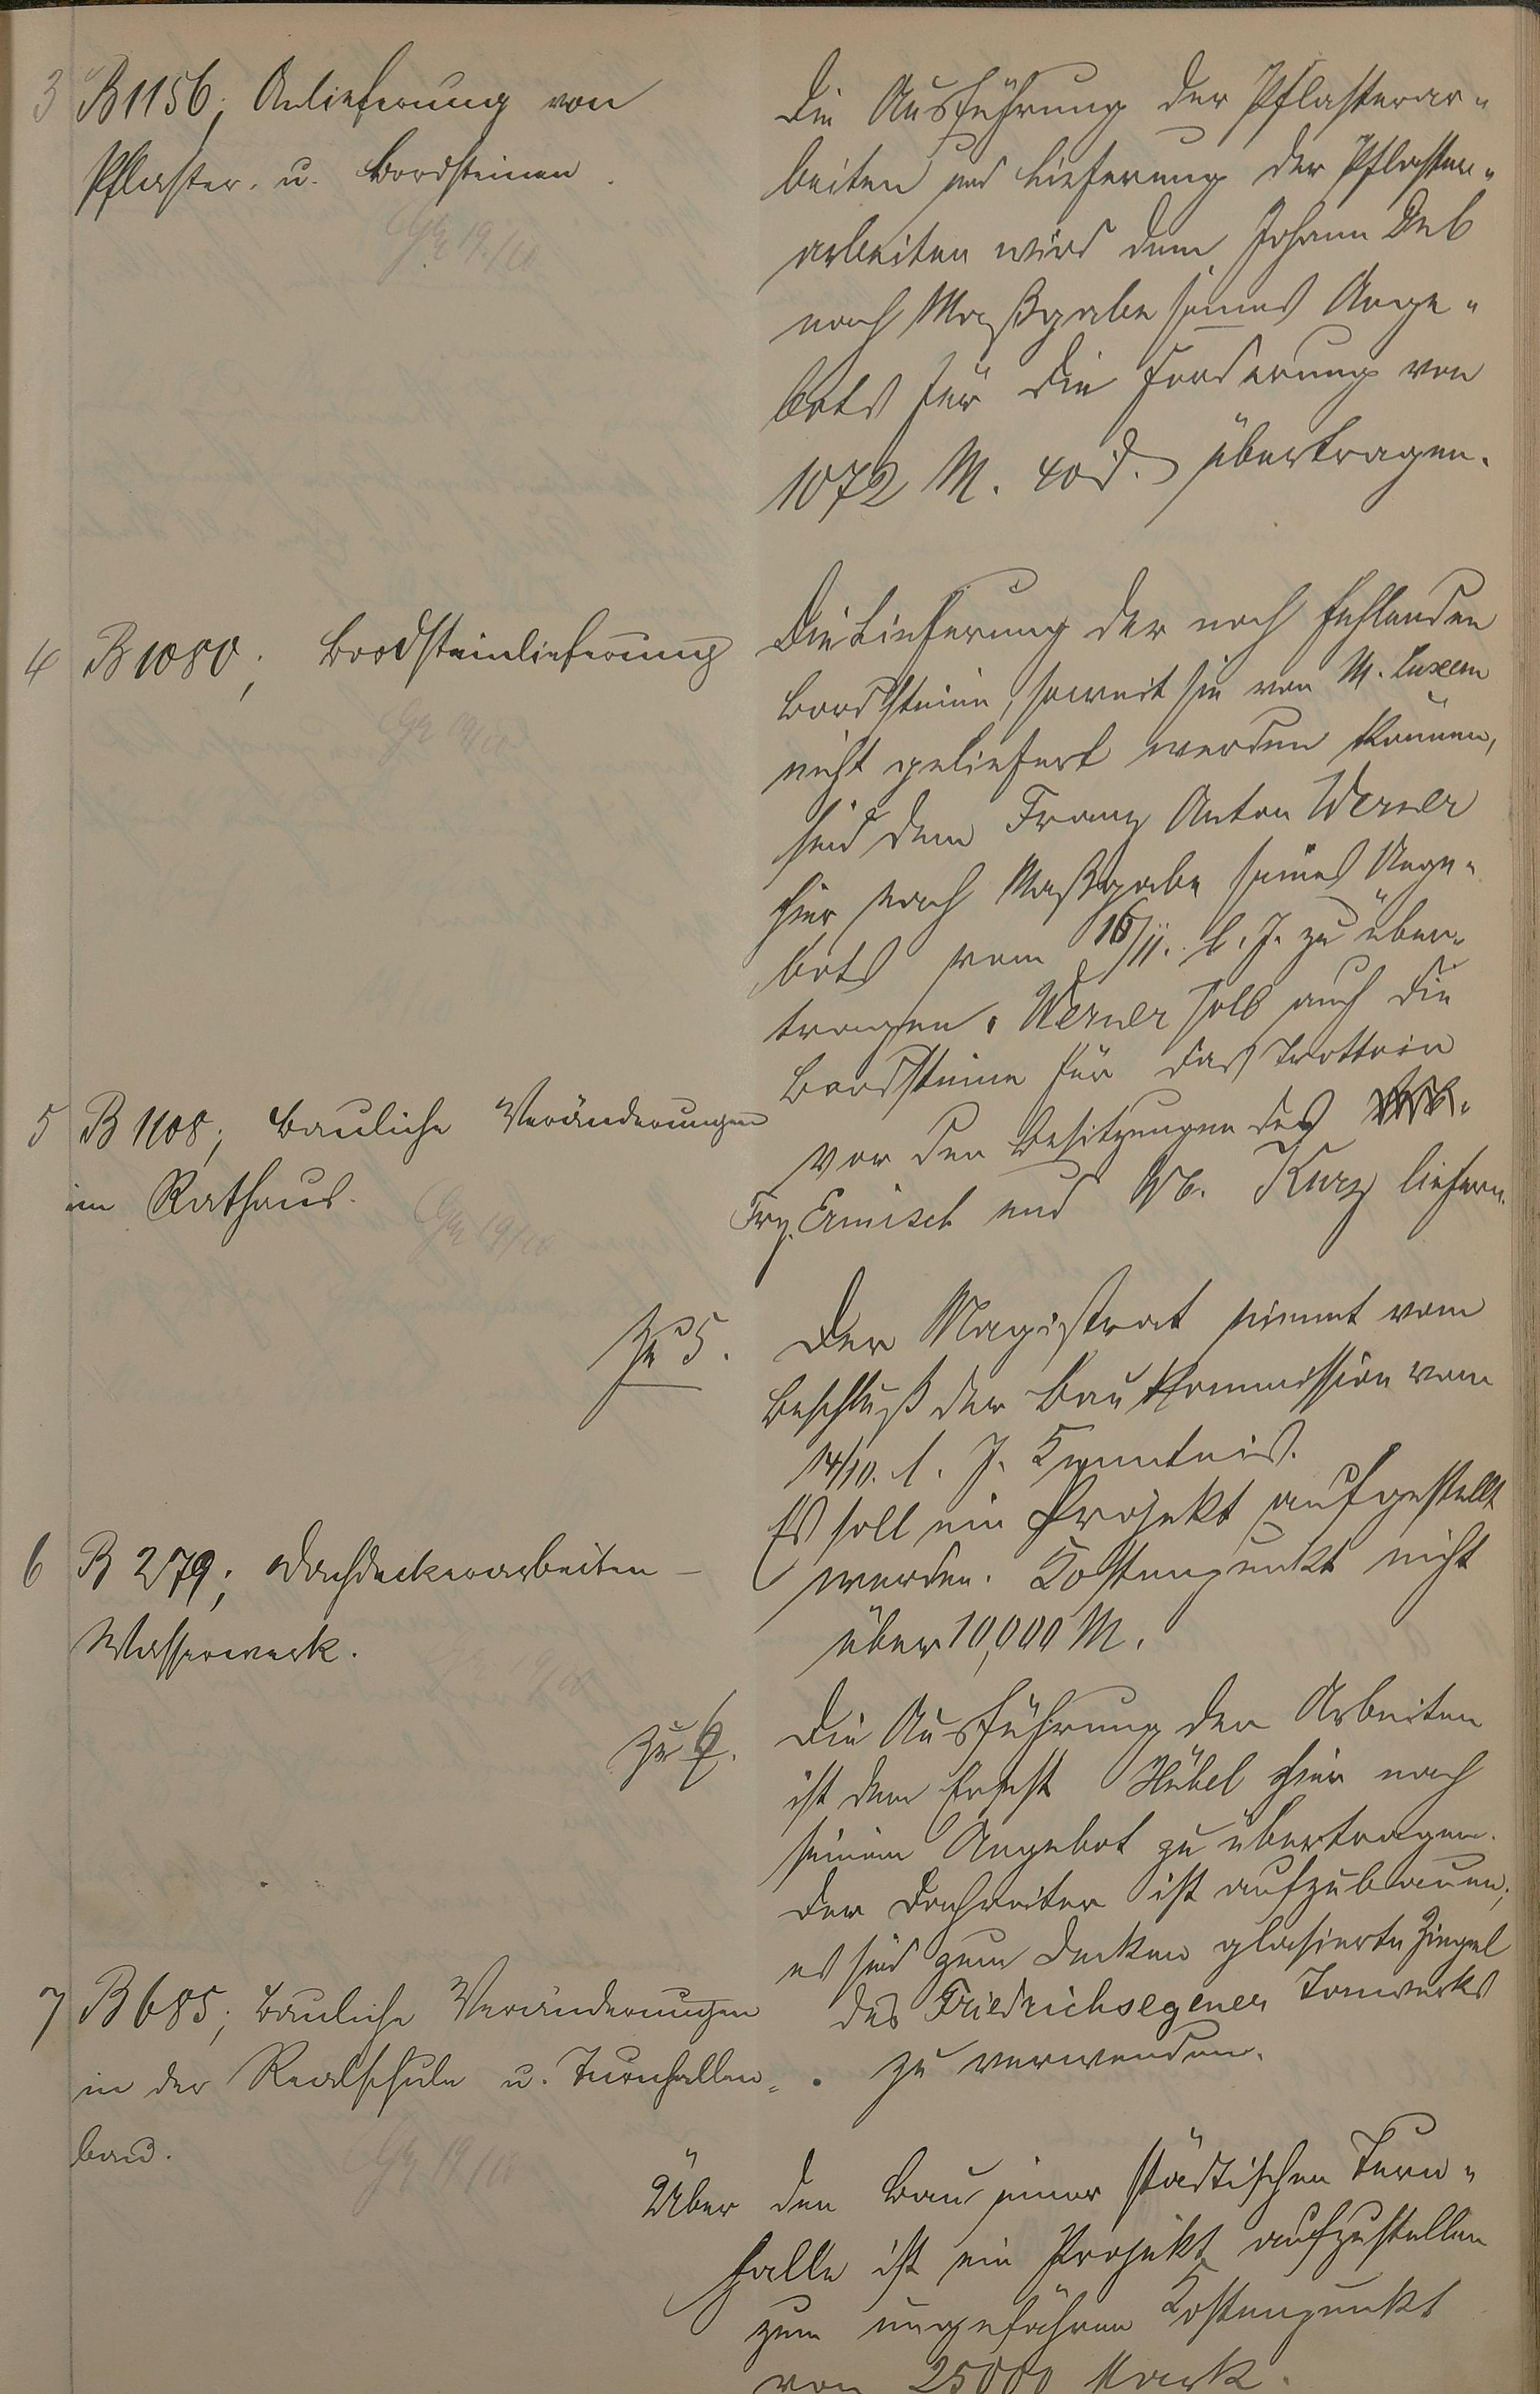 3 B 1156; Anlieferung von
Pflaster- u. Bordsteinen.
Die Ausführung der Pflasterar-
beiten und Lieferung der Pflaster-
arbeiten wird dem Johann
nach Maßgabe seines Ange-
bots für die Forderung von
1072 M. 40 d. übertragen.
4 B 1080; Bordsteinlieferung
Die Lieferung der noch fehlenden
Bordsteine, soweit sie von M. Luxem
nicht geliefert werden können,
sind dem Franz Anton Werner
hier nach Maßgabe seines Ange-
bots vom 16/11. l. J. zu über-
tragen. Werner soll auch die
Bordsteine für das Trottoir
vor den Besitzungen des
Frz. Ermisch und Kurz liefern.
5 B 1108; Bauliche Veränderungen
im Rathaus.
Zu 5. Der Magistrat nimmt vom
Beschluß der Baukommission vom
14/10. l. J. Kenntnis.
Es soll ein Projekt aufgestellt
werden. Kostenpunkt nicht
über 10,000 M.
6 B 279; Dachdeckerarbeiten -
Wasserwerk.
Zu 6. Die Ausführung der Arbeiten
ist dem Ernst Hübel hier nach
seinem Angebot zu übertragen.
Der Dachreiter ist aufzubauen;
es sind zum Decken glasierte Ziegel
des Friedrichsegener Tonwerks
zu verwenden.
7 B 685; Bauliche Veränderungen
in der Realschule u. Turnhallen-
bau.
Über den Bau einer städtischen Turn-
halle ist ein Projekt aufzustellen
zum ungefähren Kostenpunkt
von 25000 Mark.